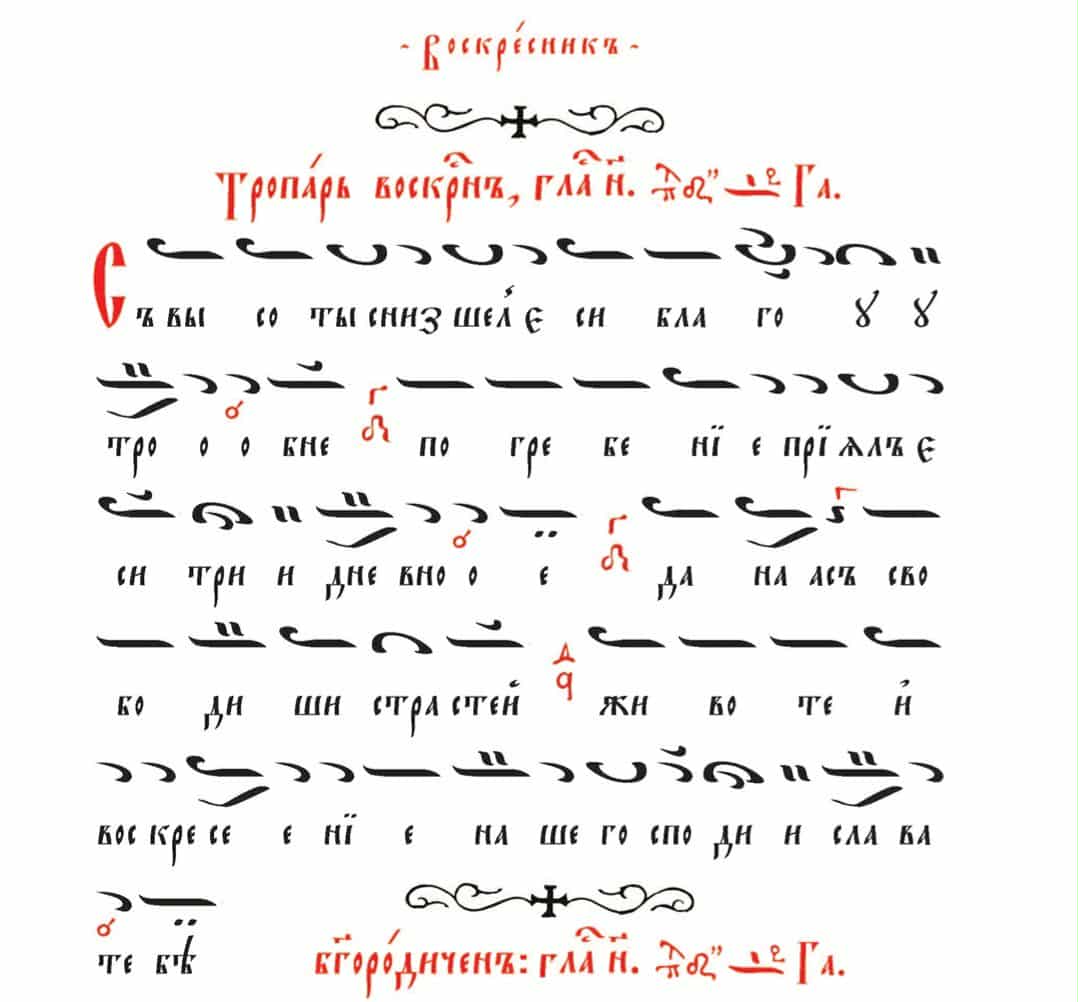 - Воскре́сникъ -
Тропа́рь воскр҇нъ, гла҇ и҃. Га.
Съ вы со ты сниз шел є си бла го ꙋ ꙋ
тро о о бне по гре бе нї е прї ѧлъ є
си три и дне вно о е да на асъ сво
бо ди ши стра стей жи во те и҆
вос кре се е нї е на ше го спо ди и сла ва
те бѣ
бг҃оро́диченъ: гла҇ и҃. Га.